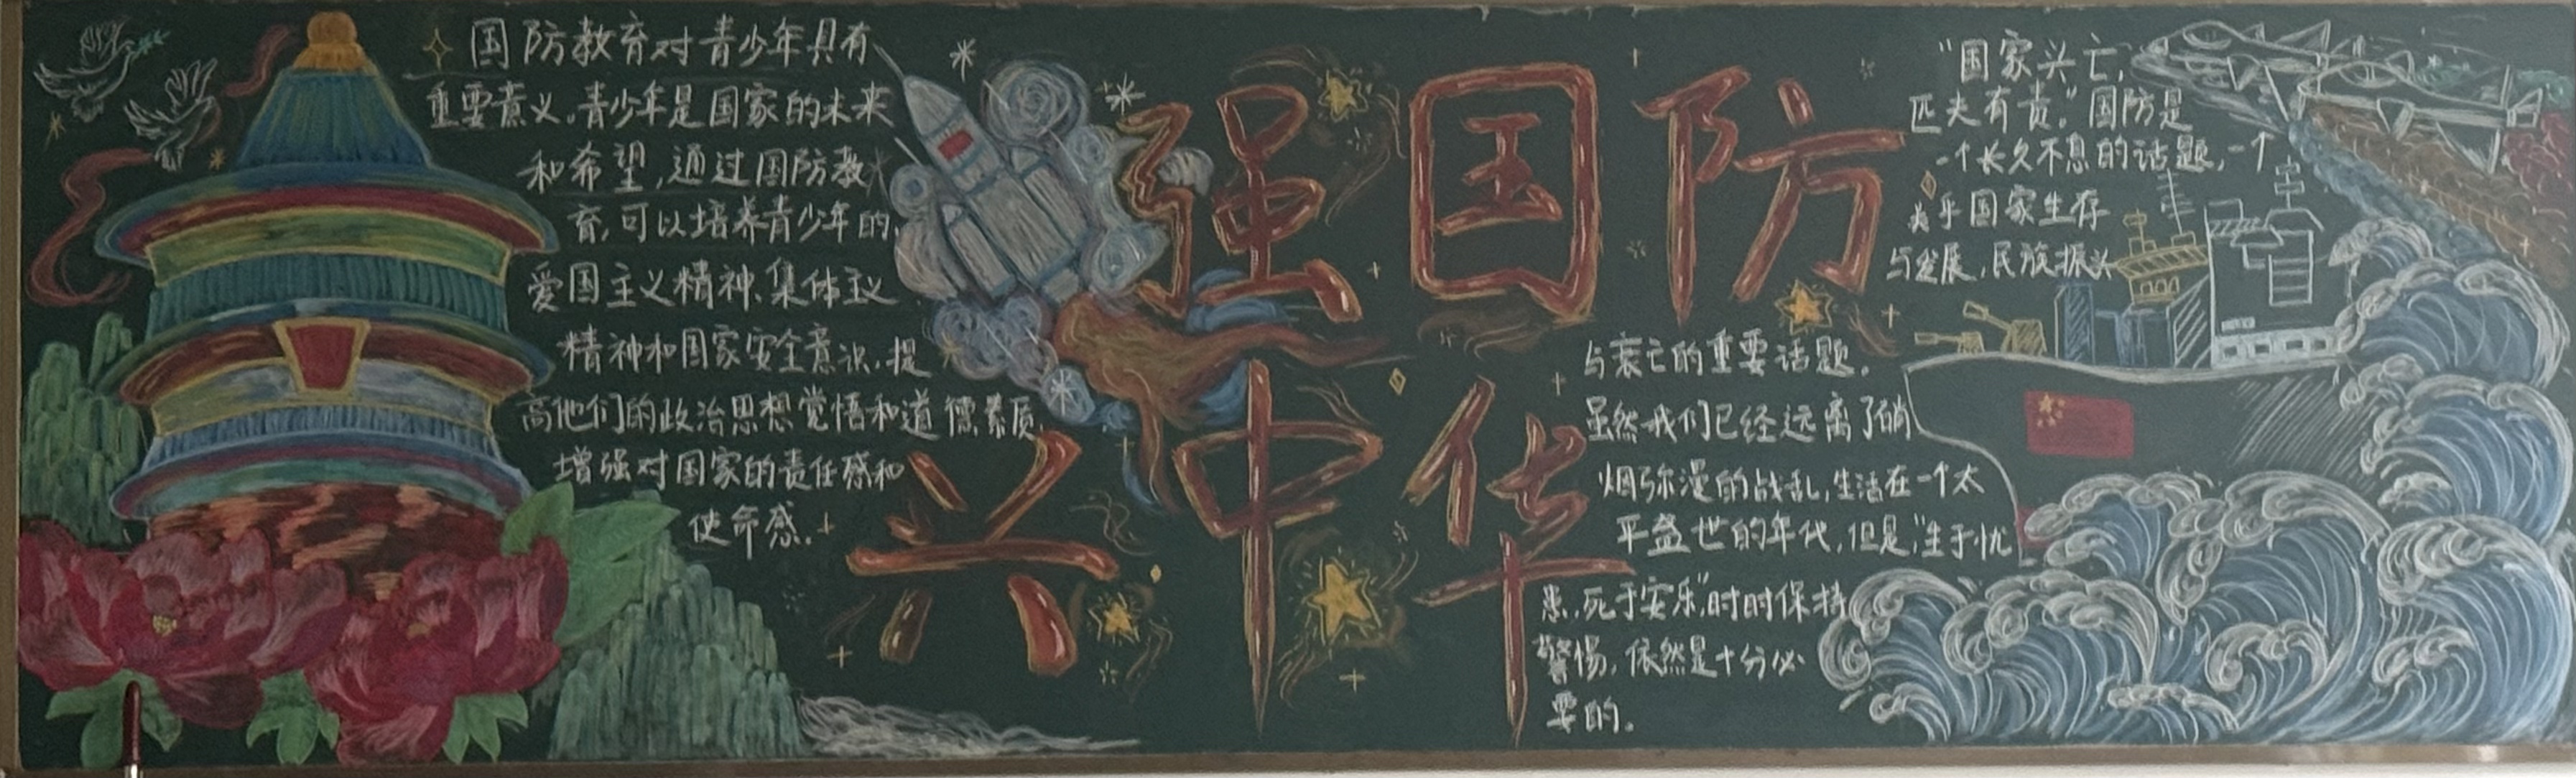 国防教育对青少年具有
重要意义。青少年是国家的未来
和希望,通过国防教
育,可以培养青少年的
爱国主义精神、集体主义
精神和国家安全意识,提
高他们的政治思想觉悟和道德素质,
增强对国家的责任感和
使命感。
强国防
兴中华
“国家兴亡,
匹夫有责。”国防是
一个长久不息的话题,一个
关乎国家生存
与发展,民族振兴
与衰亡的重要话题。
虽然我们已经远离了硝
烟弥漫的战乱,生活在一个太
平盛世的年代,但是,“生于忧
患,死于安乐”,时时保持
警惕,依然是十分必
要的。